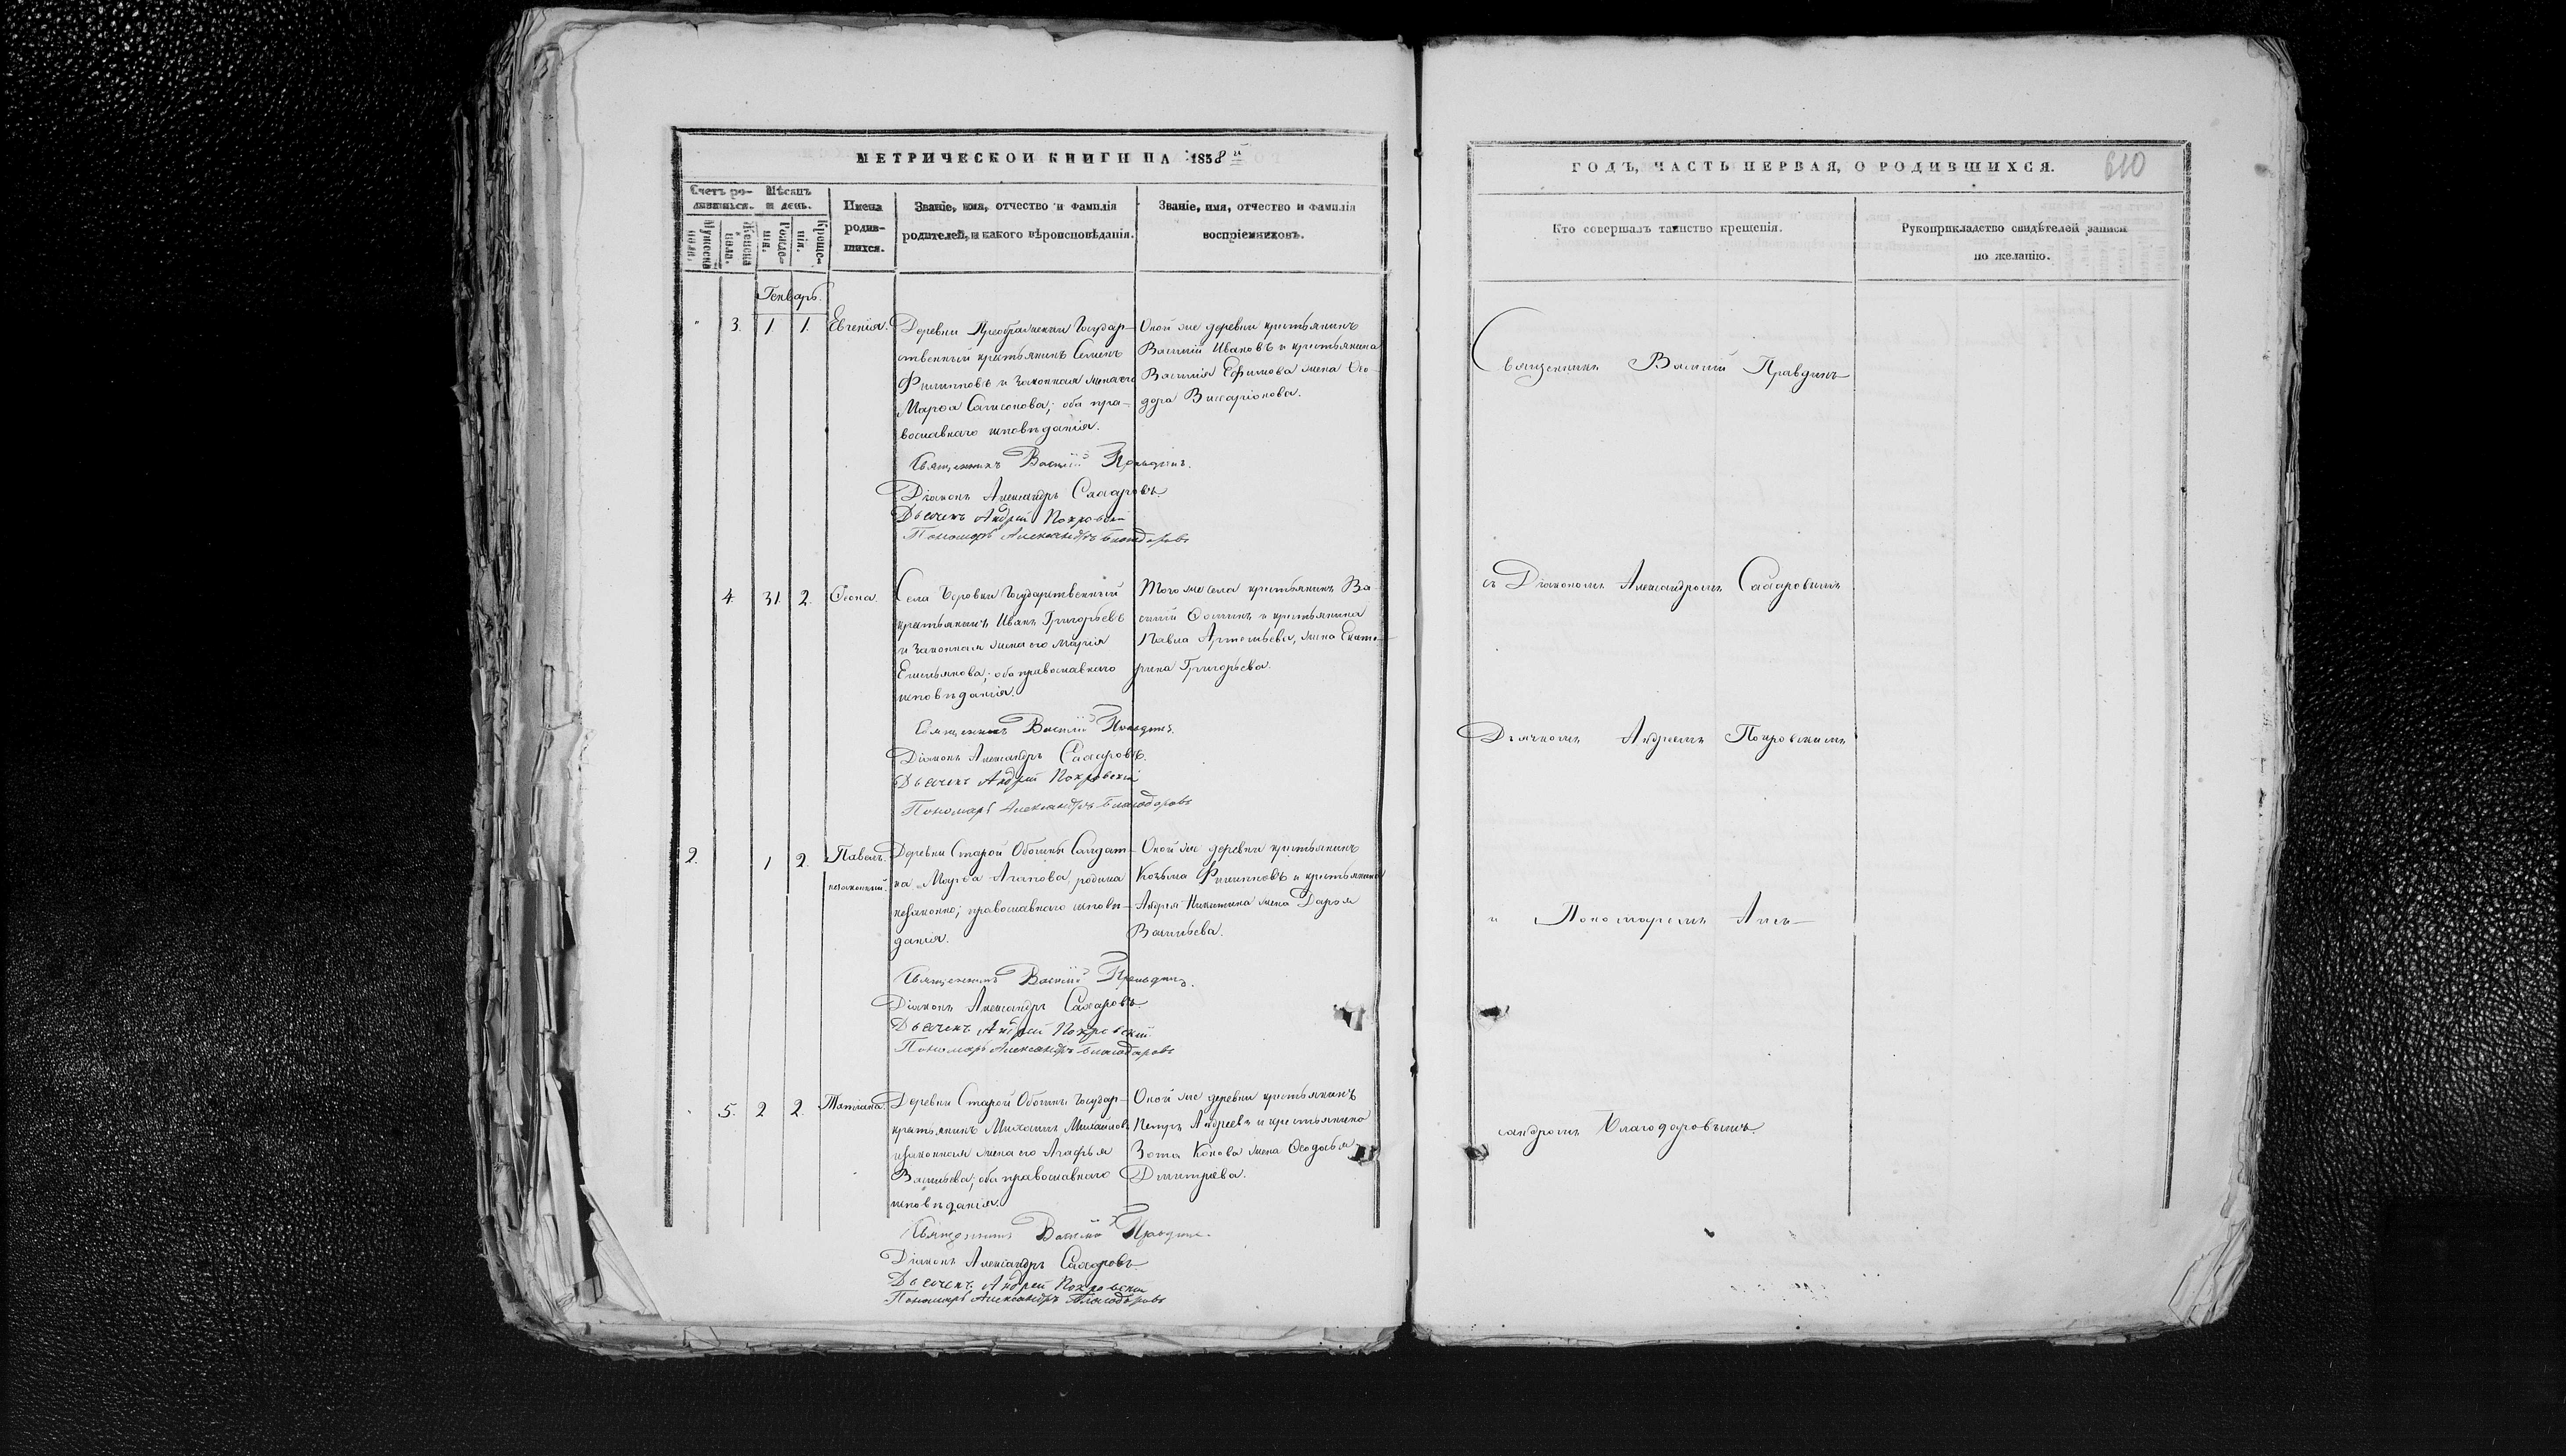 МЕТРИЧЕСКОЙ КНИГИ НА 1858й
Счетъ родившихся.
Мѣсяцъ и день.
Имена родившихся.
Званіе, имя, отчество и фамилія родителей, и какого вѣроисповѣданія.
Званіе, имя, отчество и фамилія воспріемниковъ.
Мужеска пола.
Женска пола.
Рожденія.
Крещенія.
Генварь.
" 3. 1. 1. Евгенія.
Деревни Преображенки Государ-
ственный крестьянинъ Семенъ
Филипповъ и законная жена его
Марѳа Самсонова; оба пра-
вославнаго исповѣданія.
Оной же деревни крестьянинъ
Василий Ивановъ и крестьянина
Василія Ефимова жена Ѳео-
дора Виссаріонова.
Священникъ Василій Правдинъ.
Діаконъ Александръ Сахаровъ.
Дьячекъ Андрей Покровскій
Пономарь Александръ Благодаровъ
4. 31. 2. Ѳеона.
Села Боровки Государственный
крестьянинъ Иванъ Григорьевъ
и законная жена его Марія
Емельянова; оба православнаго
исповѣданія.
Того же села крестьянинъ Ва-
силий Ѳоминъ и крестьянина
Павла Артемьева, жена Екате-
рина Григорьева.
Священникъ Василій Правдинъ.
Діаконъ Александръ Сахаровъ.
Дьячекъ Андрей Покровскій
Пономарь Александръ Благодаровъ
2. 1 2. Павелъ.
незаконный.
Деревни Старой Солдат-
ка Марѳа Агапова, родила
незаконно; православнаго исповѣ-
данія.
Оной же деревни крестьянинъ
Козьма Филипповъ и крестьянина
Андрея Никитина жена Дарья
Васильева.
Священникъ Василій Правдинъ.
Діаконъ Александръ Сахаровъ
Дьячекъ Андрей Покровскій
Пономарь Александръ Благодаровъ
5. 2 2. Татіана.
Деревни Старой Государ-
крестьянинъ Михаилъ Михайловъ
и законная жена его Агафья
Васильева; оба православнаго
исповѣданія.
Оной же деревни крестьянинъ
Петръ Андреевъ и крестьянина
Зота Конова жена Ѳеодосья
Дмитріева.
Священникъ Василій Правдинъ.
Діаконъ Александръ Сахаровъ.
Дьячекъ Андрей Покровскій
Пономарь Александръ Благодаровъ
ГОДЪ, ЧАСТЬ ПЕРВАЯ, О РОДИВШИХСЯ.
610
Кто совершалъ таинство крещенія.
Рукоприкладство свидѣтелей записи
по желанію.
Священникъ Василий Правдинъ
съ Діакономъ Александромъ Сахаровымъ
Дьячкомъ Андреемъ Покровскимъ
и Пономаремъ Алек-
сандромъ Благодаровымъ.